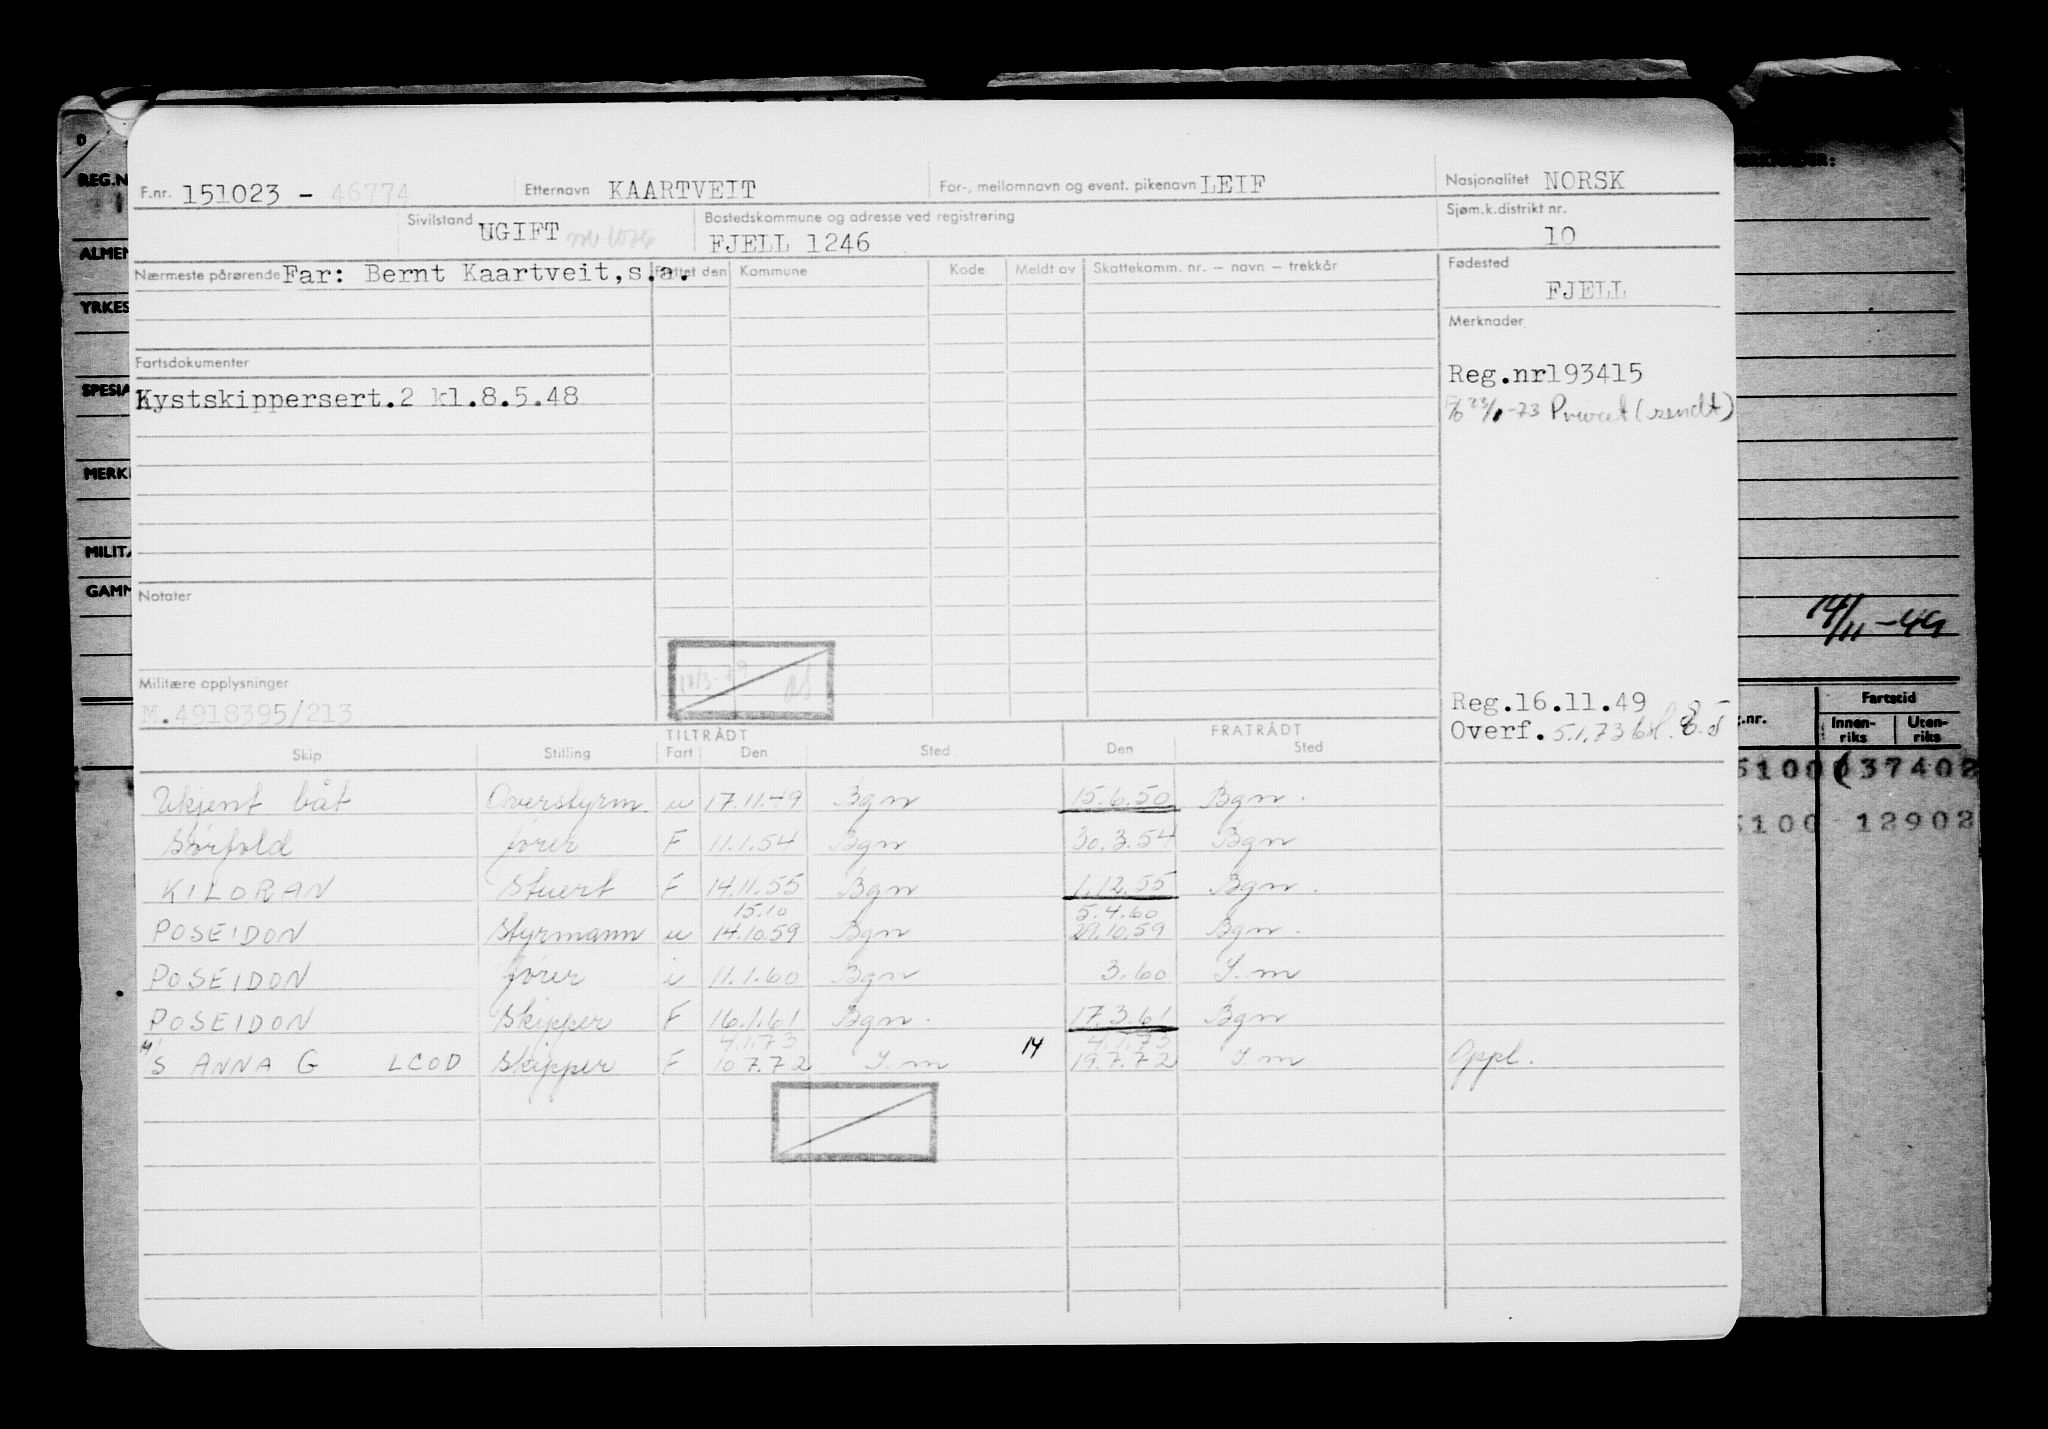 F.nr. 151023 - 46774 Etternavn KAARTVEIT For-, mellomnavn og event. pikenavn LEIF Nasjonalitet NORSK
Sivilstand UGIFT Bostedskommune og adresse ved registrering FJELL 1246 Sjøm.k.distrikt nr. 10
Nærmeste pårørende Far: Bernt Kaartveit, s.a. Flyttet den Kommune Kode Meldt av Skattekomm. nr. – navn – trekkår Fødested
FJELL
Merknader
Fartsdokumenter
Kystskippersert.2 kl.8.5.48 Reg.nr193415
-73 Privat (sendt)
Notater
Militære opplysninger
M.4918395/213 Reg.16.11.49
Overf. 5.1.73
TILTRÅDT FRATRÅDT
Skip Stilling Fart Den Sted Den Sted
Ukjent båt Overstyrm. u 17.11.49 Bgn 15.6.50 Bgn.
Sørfold fører F 11.1.54 Bgn 30.3.54 Bgn
KILORAN Stuert F 14.11.55 Bgn 1.12.55 Bgn.
15.10 5.4.60
POSEIDON Styrmann u 14.10.59 Bgn 29.10.59 Bgn.
POSEIDON fører i 11.1.60 Bgn 3.60 S.m
POSEIDON Skipper F 16.1.61 Bgn. 17.3.61 Bgn
4.1.73 4.1.73
M/S ANNA G LCOD Skipper F 10.7.72 S.m 14 19.7.72 S m Oppl.
0
REG.N
ALMEN
YRKES
SPESIA
MERK
MILIT
GAMM
MERKNADER:
14/11-49
Fartstid
g.nr. Innen-riks Uten-riks
5100 37402
5100 12902